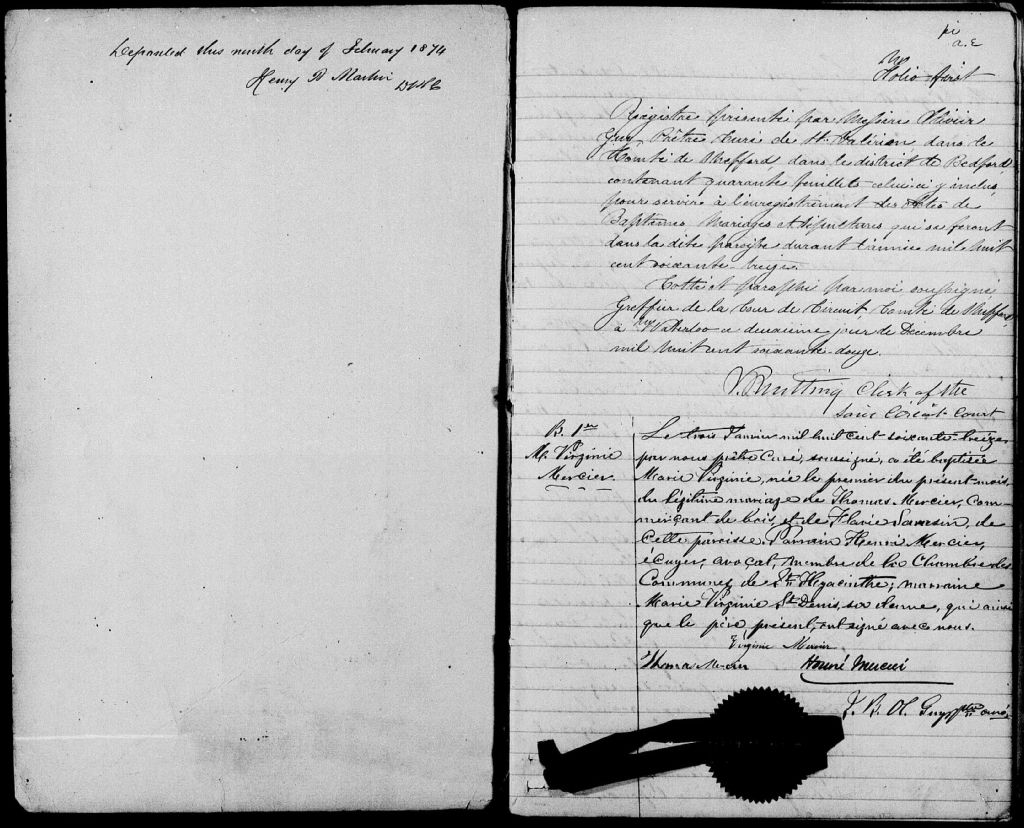 Deposited this ninth day of February 1874
Henry B Martin
pr
a. E
Folio first
Régistre présenté par Messire Olivier
Guy Prêtre Curé de St. Valérien, dans le
Comté de Shefford, dans le district de Bedford,
contenant quarante feuillets celui-ci y inclus,
pour servir à l'enregistrement des Actes de
Baptemes, Mariages et Sépultures qui se feront
dans la dite paroisse durant l'année mil huit
cent soixante-treize.
Cotté et paraphé par moi soussigné
Greffier de la Cour de Circuit, Comté de Shefford,
à Waterloo ce deuxième jour de Décembre
mil huit cent soixante-douze.
Clerk of the
said Circuit Court
B. 1ère
M. Virginie
Mercier.
Le trois Janvier mil huit cent soixante-treize,
par nous prêtre Curé, soussigné, a été baptisée
Marie Virginie, née le premier du présent mois,
du légitime mariage de Thomas Mercier, Com-
merçant de bois, et de Flavie Sarasin, de
cette paroisse. Parrain Honoré Mercier,
écuyer, avocat, membre de la Chambre des
Communes, de St. Hyacinthe; marraine
Marie Virginie St. Denis, son épouse, qui ainsi
que le père présent, ont signé avec nous.
Virginie Mercier
Thomas Mercier Honoré Mercier
J. B. O. Guy Ptre curé.